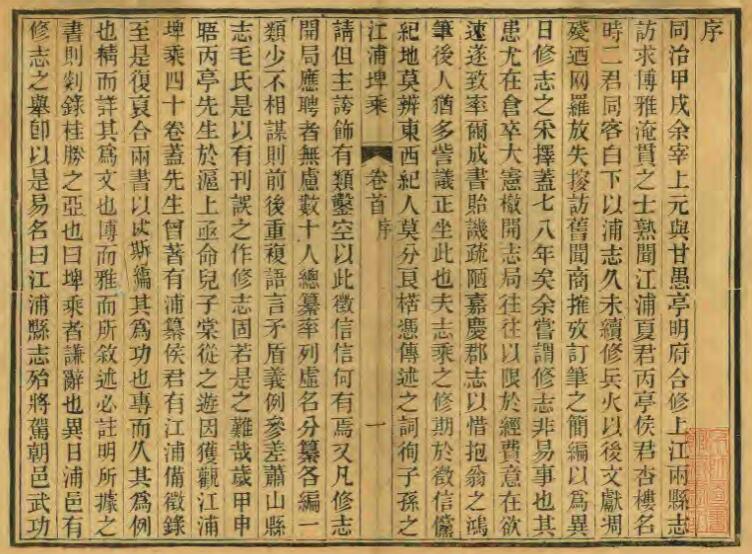 序
同治甲戌余宰上元與甘愚亭明府合修上江兩縣志
訪求博雅淹貫之士熟聞江浦夏君丙亭侯君杏樓名
時二君同客白下以浦志久未續修兵火以後文獻凋
殘迺网羅放失搜訪舊聞商搉攷訂筆之簡編以為異
日修志之采擇蓋七八年矣余嘗謂修志非易事也其
患尤在倉卒大憲檄開志局往往以限於經費意在欲
速遂致率爾成書貽譏疏陋嘉慶郡志以惜抱翁之鴻
筆後人猶多訾議正坐此也夫志乘之修期於徵信儻
紀地莫辨東西紀人莫分良楛憑傳述之詞徇子孫之
江浦埤乘
卷首
序
一
請但主誇飾有類鑿空以此徵信信何有焉又凡修志
開局應聘者無慮數十人總纂率列虛名分纂各編一
類少不相謀則前後重複語言矛盾義例參差蕭山縣
志毛氏是以有刊誤之作修志固若是之難哉歲甲申
晤丙亭先生於滬上亟命兒子棠從之遊因獲觀江浦
埤乘四十卷蓋先生曾著有浦纂侯君有江浦備徵錄
至是復裒合兩書以成斯編其為功也專而久其為例
也精而詳其為文也博而雅而所敘述必註明所據之
書則剡錄桂勝之亞也曰埤乘者謙辭也異日浦邑有
修志之舉卽以是易名曰江浦縣志殆將駕朝邑武功